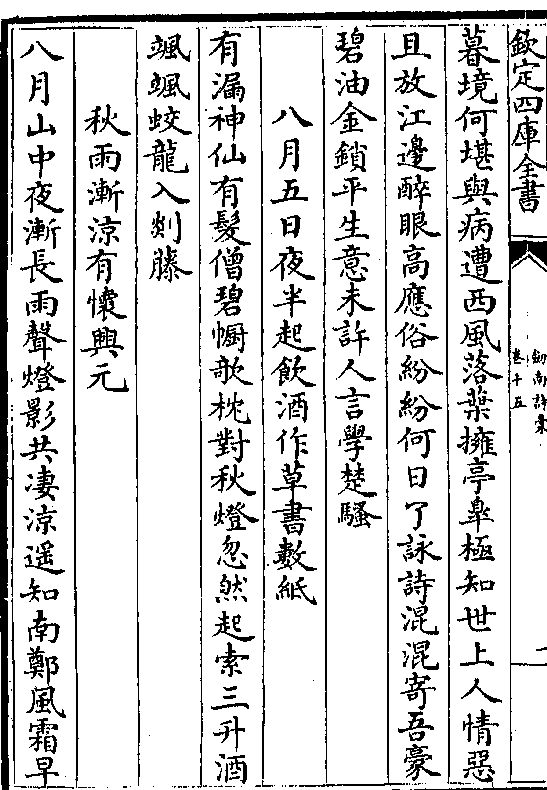 欽定四庫全書
劍南詩稾
卷十五
暮境何堪與病遭西風落葉擁亭臯極知世上人情惡
且放江邊醉眼高應俗紛紛何日了詠詩混混寄吾豪
碧油金鎖平生意未許人言學楚騷
八月五日夜半起飲酒作草書數紙
有漏神仙有髮僧碧㡡歌枕對秋燈忽然起索三升酒
颯颯蛟龍入剡藤
秋雨漸涼有懷興元
八月山中夜漸長雨聲燈影共淒涼遥知南鄭風霜早